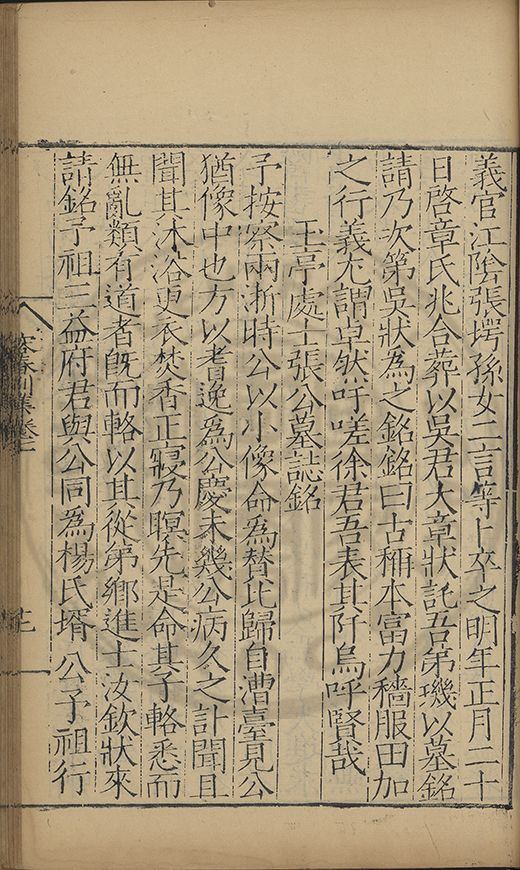 義官江陰張堮孫女二言等卜卒之明年正月二十
日啓章氏兆合葬以吳君大章狀託吾弟璣以墓銘
請乃次第吳狀為之銘銘曰古稱本富力穡服田加
之行義尤謂卓然吁嗟徐君吾表其阡烏呼賢哉
玉亭處士張公墓誌銘
予按察兩浙時公以小像命為贊比歸自漕臺見公
猶像中也方以耆逸為公慶未幾公病久之訃聞且
聞其沐浴更衣焚香正寢乃瞑先是命其子輅悉而
無亂類有道者旣而輅以其從弟鄉進士汝欽狀來
請銘予祖三益府君與公同為楊氏壻 公予祖行